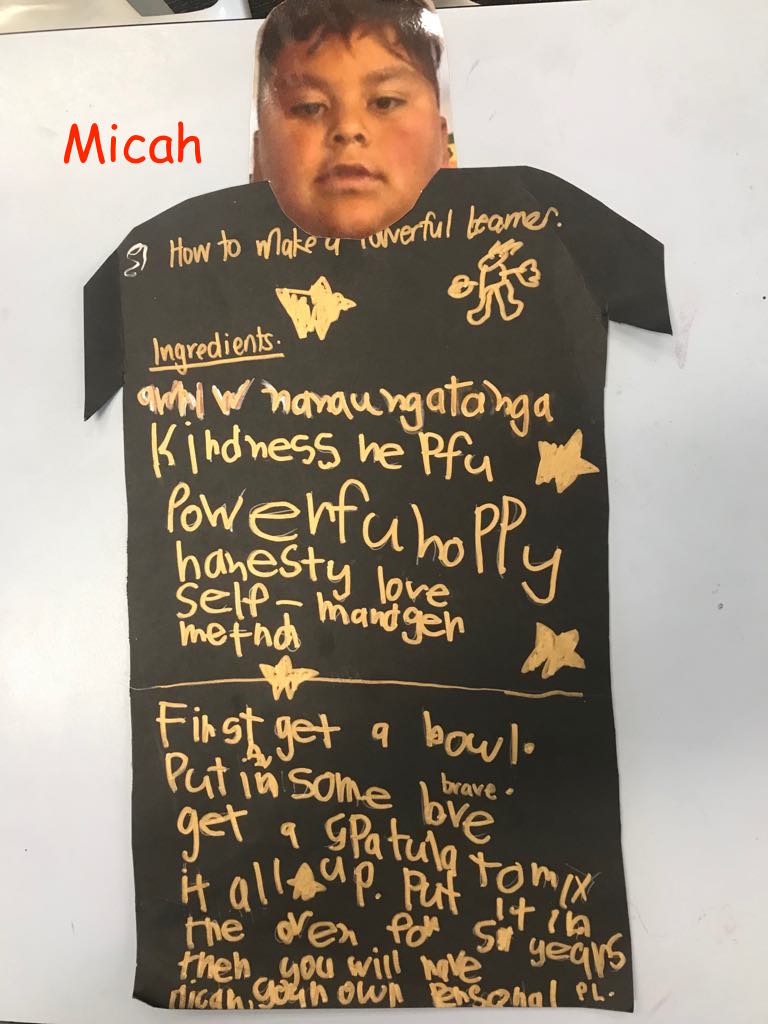 Micah
How to Make a Powerful Learner.
Ingredients.
whanaungatanga
Kindness he Pfu
Powerfu hoppy
honesty love
self-
First get a bowl.
Put in some love
brave.
get a spatula to mix
it all up. Put it in
the oven for years
then you will have
Micah, your own Personal PL.